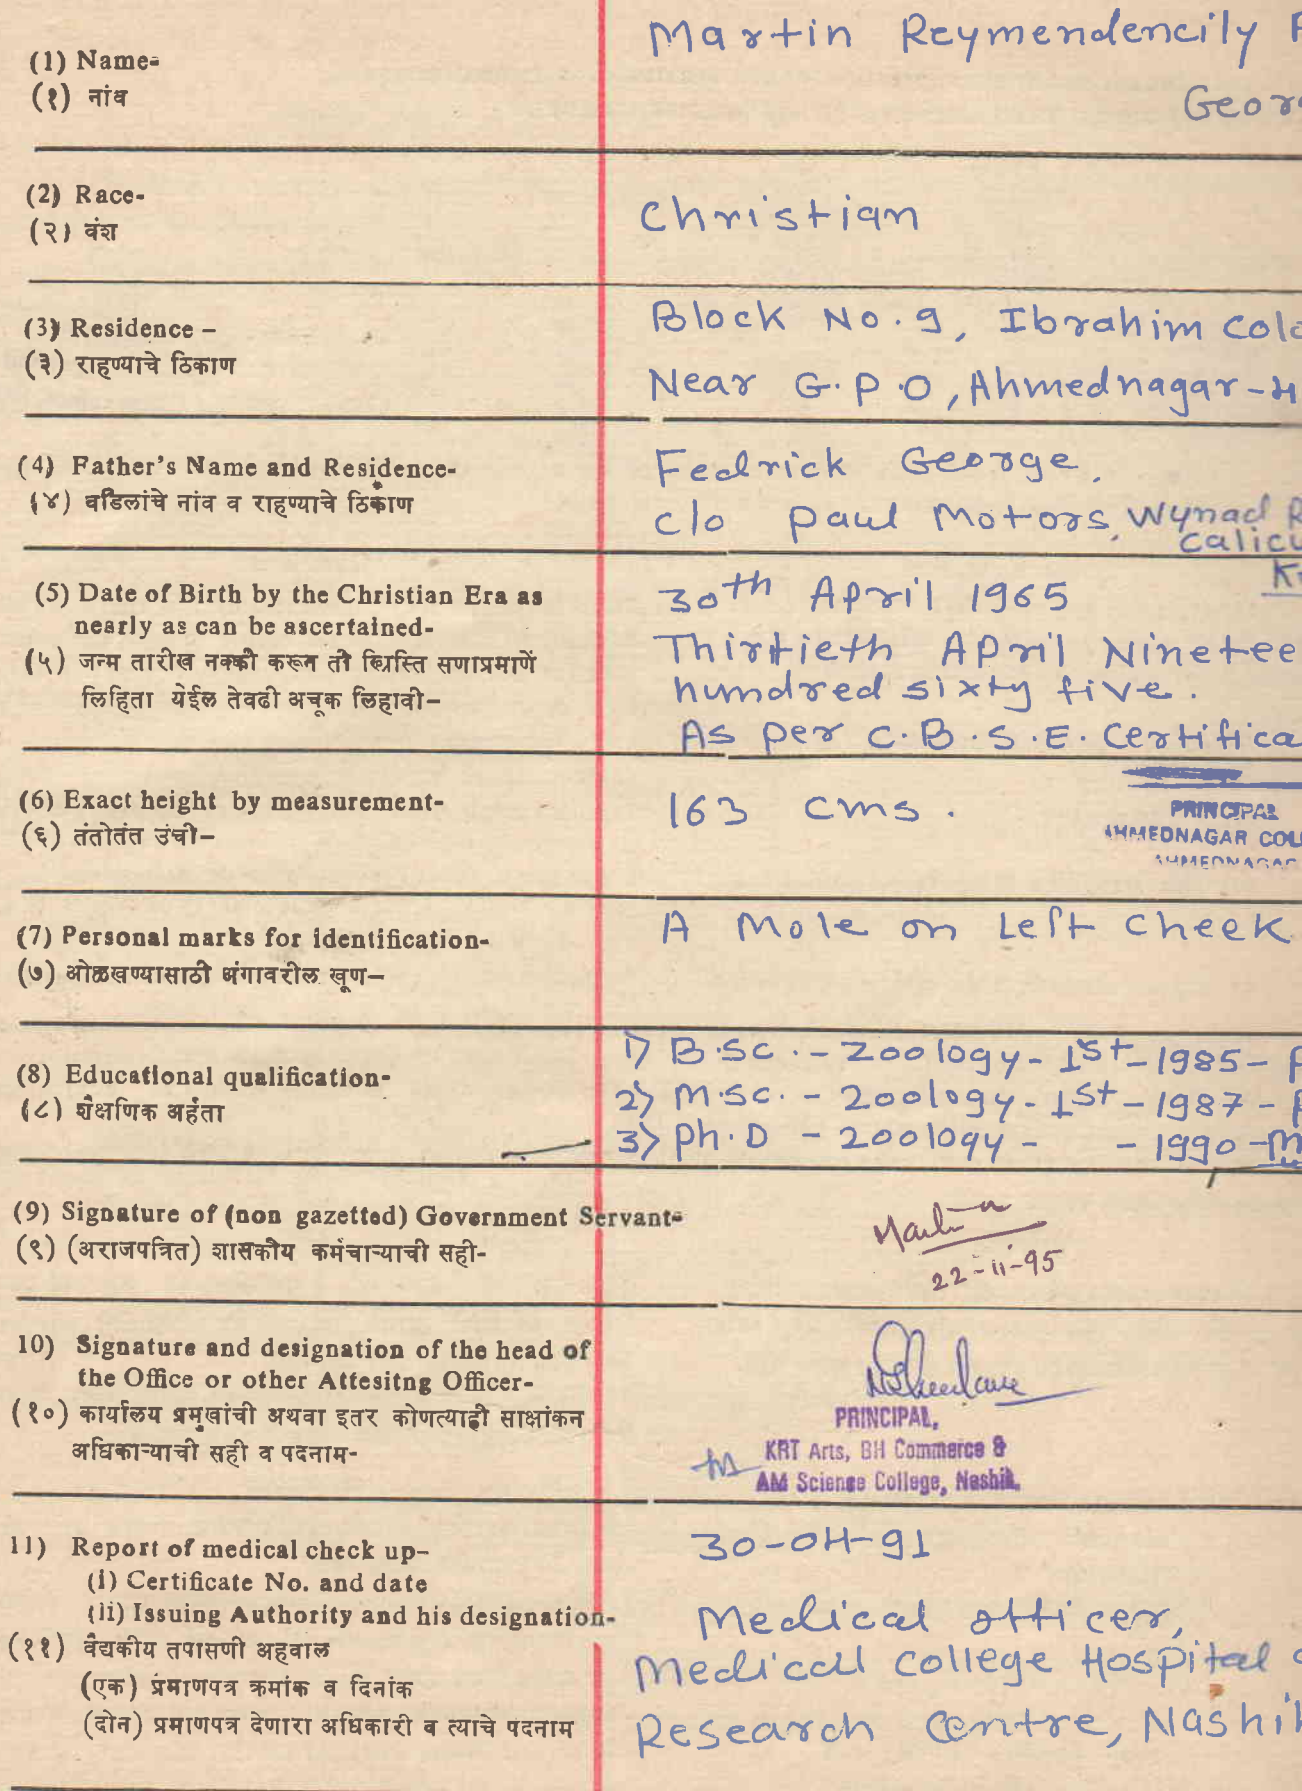 (1) Name-
(१) नांव
Martin Reymendencily F
Geor
(2) Race-
(२) वंश
Christian
(3) Residence –
(३) राहण्याचे ठिकाण
Block No. 9, Ibrahim Colo
Near G.P.O, Ahmednagar-
(4) Father's Name and Residence-
(४) वडिलांचे नांव व राहण्याचे ठिकाण
Fedrick George,
c/o Paul Motors, Wynad R
Calicu
(5) Date of Birth by the Christian Era as
nearly as can be ascertained-
(५) जन्म तारीख नक्की करून ती ख्रिस्ति सणाप्रमाणें
लिहिता येईल तेवढी अचूक लिहावी–
30th April 1965
Thirtieth April Ninetee
hundred sixty five.
As per C.B.S.E. Certifica
(6) Exact height by measurement-
(६) तंतोतंत उंची–
163 cms.
PRINCIPAL
AHMEDNAGAR COL
AHMEDNAGAR
(7) Personal marks for identification-
(७) ओळखण्यासाठी अंगावरील खूण–
A Mole on Left Cheek
(8) Educational qualification-
(८) शैक्षणिक अर्हता
1) B.Sc. - Zoology - 1st - 1985 -
2) M.Sc. - Zoology - 1st - 1987 -
3) Ph.D - Zoology - - 1990 -
(9) Signature of (non gazetted) Government Servant-
(९) (अराजपत्रित) शासकीय कर्मचाऱ्याची सही-
22-11-95
10) Signature and designation of the head of
the Office or other Attesitng Officer-
(१०) कार्यालय प्रमुखांची अथवा इतर कोणत्याही साक्षांकन
अधिकाऱ्याची सही व पदनाम-
PRINCIPAL,
KRT Arts, BH Commerce &
AM Science College, Nashik.
11) Report of medical check up–
(i) Certificate No. and date
(ii) Issuing Authority and his designation-
(११) वैद्यकीय तपासणी अहवाल
(एक) प्रमाणपत्र क्रमांक व दिनांक
(दोन) प्रमाणपत्र देणारा अधिकारी व त्याचे पदनाम
30-04-91
Medical officer,
Medical College Hospital
Research Centre, Nashik